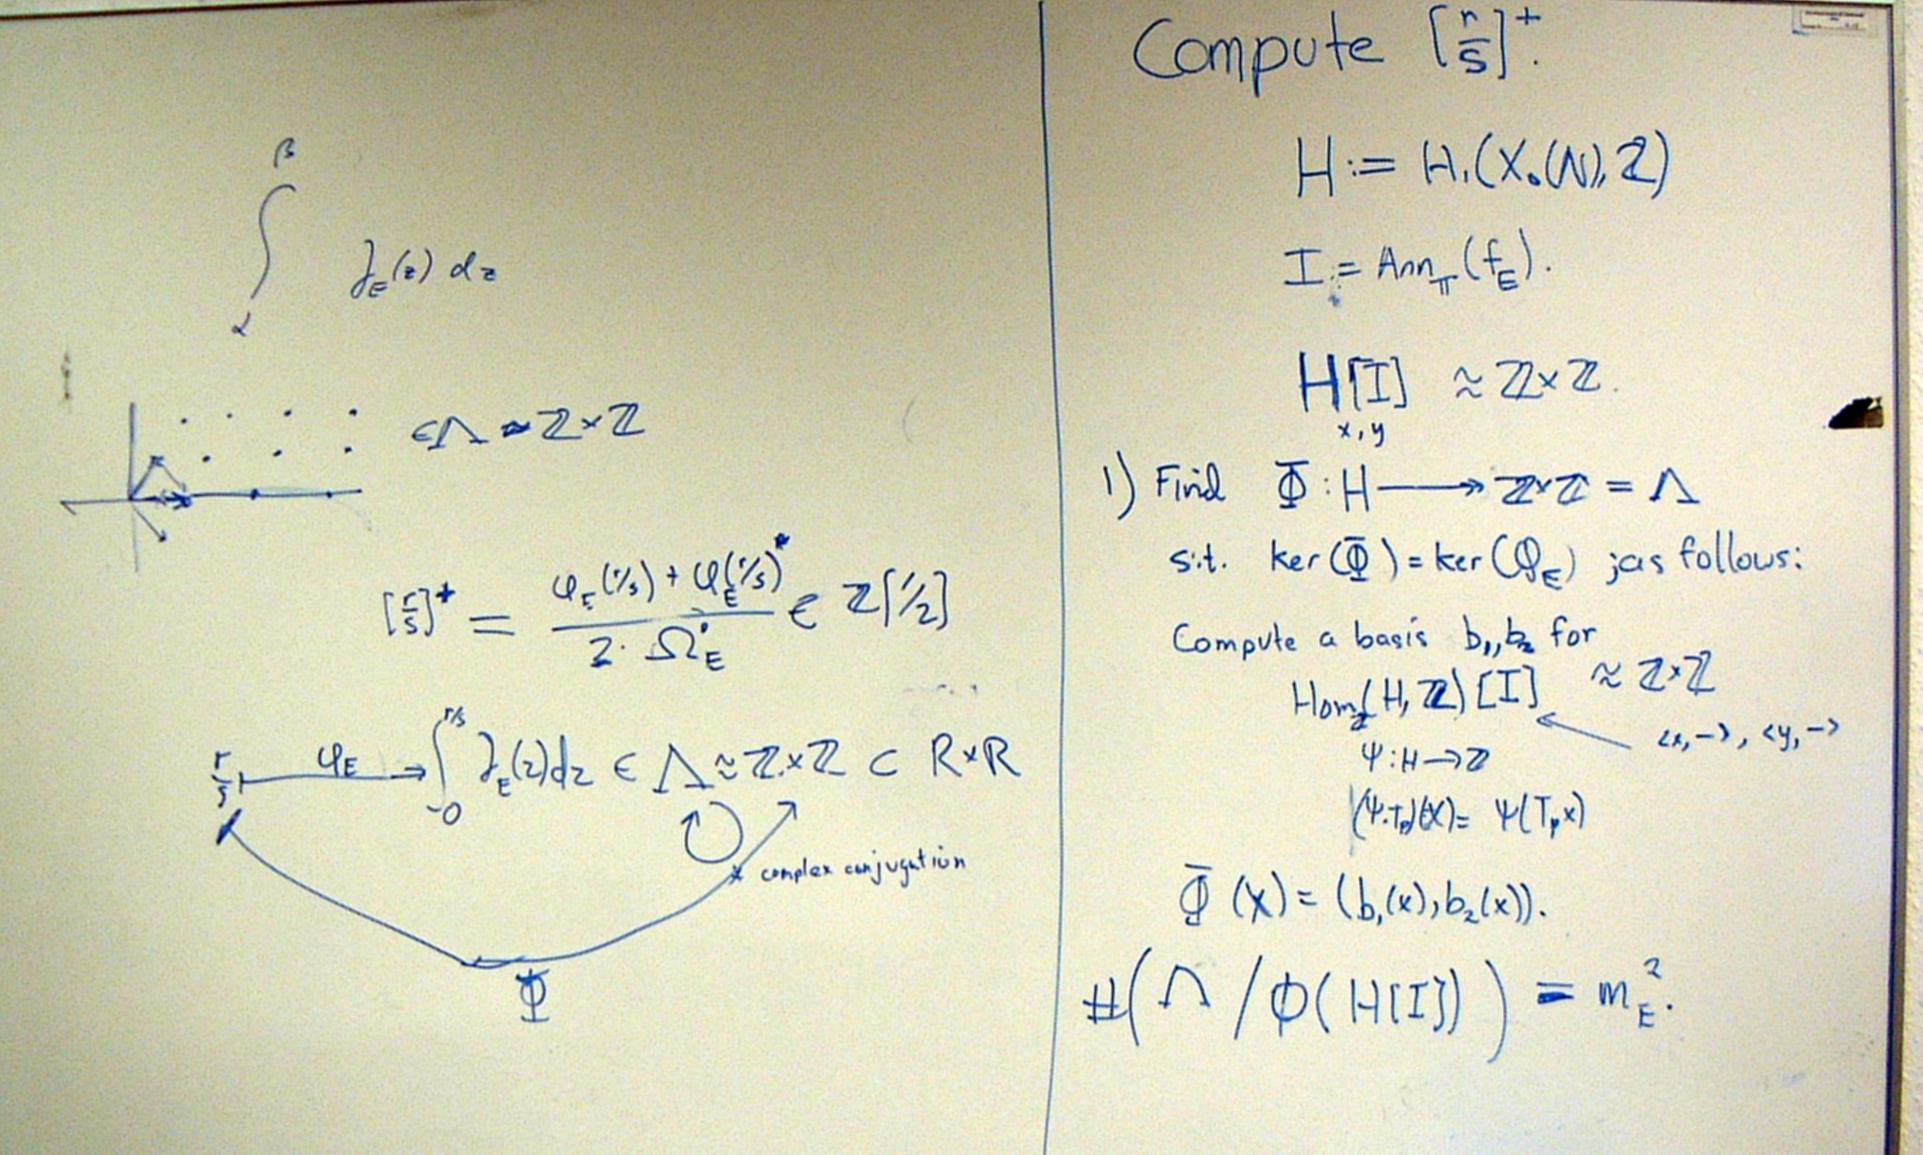 ∫_α^β f_E(z) dz
∈ Λ ≈ ℤ×ℤ
[r/s]^+ = (φ_E(r/s) + φ_E(r/s)^*) / (2·Ω_E) ∈ ℤ[1/2]
r/s ↦^{φ_E} ∫_{-0}^{r/s} f_E(z)dz ∈ Λ ≈ ℤ×ℤ ⊂ R×R
complex conjugation
Φ
Compute [r/s]^+.
H := H_1(X_0(N), ℤ)
I := Ann_𝕋(f_E).
H[I] ≈ ℤ×ℤ.
x, y
1) Find Φ : H ↠ ℤ×ℤ = Λ
s.t. ker(Φ) = ker(φ_E) as follows:
Compute a basis b_1, b_2 for
Hom_ℤ(H, ℤ)[I] ≈ ℤ×ℤ
<x, ->, <y, ->
Ψ : H → ℤ
(Ψ·T_p)(x) = Ψ(T_p x)
Φ(x) = (b_1(x), b_2(x)).
#(Λ / Φ(H[I])) = m_E^2.